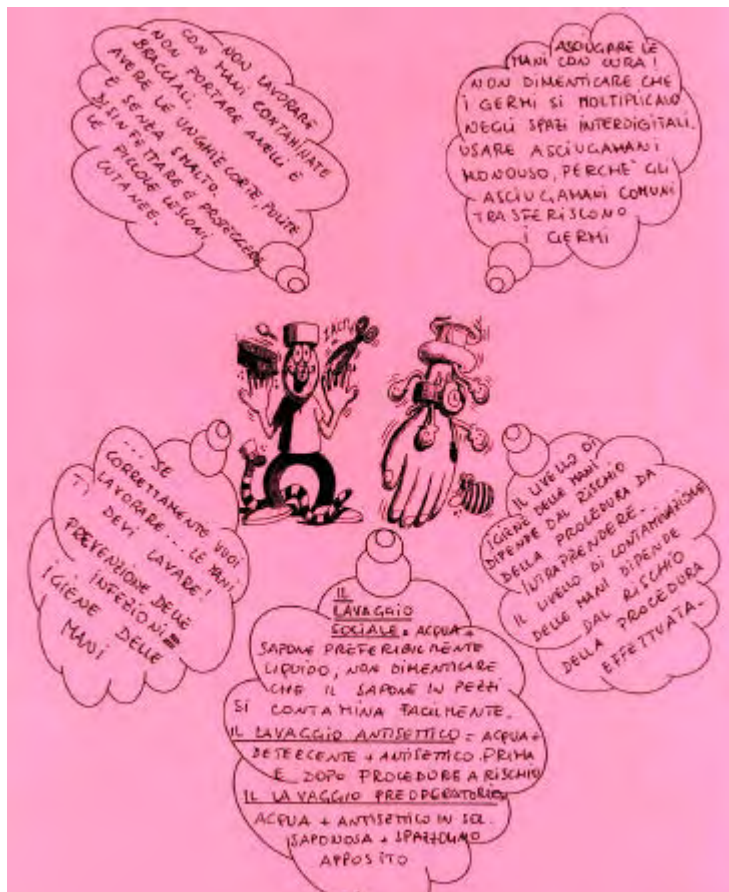 NON LAVORARE
CON MANI CONTAMINATE
NON PORTARE ANELLI E
BRACCIALI.
AVERE LE UNGHIE CORTE, PULITE
E SENZA SMALTO.
DISINFETTARE E PROTEGGERE
LE PICCOLE LESIONI
CUTANEE.
ASCIUGARE LE
MANI CON CURA!
NON DIMENTICARE CHE
I GERMI SI MOLTIPLICANO
NEGLI SPAZI INTERDIGITALI.
USARE ASCIUGAMANI
MONOUSO, PERCHE' GLI
ASCIUGAMANI COMUNI
TRASFERISCONO
I GERMI
... SE
CORRETTAMENTE VUOI
LAVORARE ... LE MANI
TI DEVI LAVARE!
PREVENZIONE DELLE
INFEZIONI =
IGIENE DELLE
MANI
IL LIVELLO DI
IGIENE DELLE MANI
DIPENDE DAL RISCHIO
DELLA PROCEDURA DA
INTRAPRENDERE.
IL LIVELLO DI CONTAMINAZIONE
DELLE MANI DIPENDE
DAL RISCHIO
DELLA PROCEDURA
EFFETTUATA.
IL
LAVAGGIO
SOCIALE = ACQUA +
SAPONE PREFERIBILMENTE
LIQUIDO, NON DIMENTICARE
CHE IL SAPONE IN PEZZI
SI CONTAMINA FACILMENTE.
IL LAVAGGIO ANTISETTICO = ACQUA +
DETERGENTE + ANTISETTICO. PRIMA
E DOPO PROCEDURE A RISCHIO
IL LAVAGGIO PREOPERATORIO
ACQUA + ANTISETTICO IN SOL.
SAPONOSA + SPAZZOLINO
APPOSITO